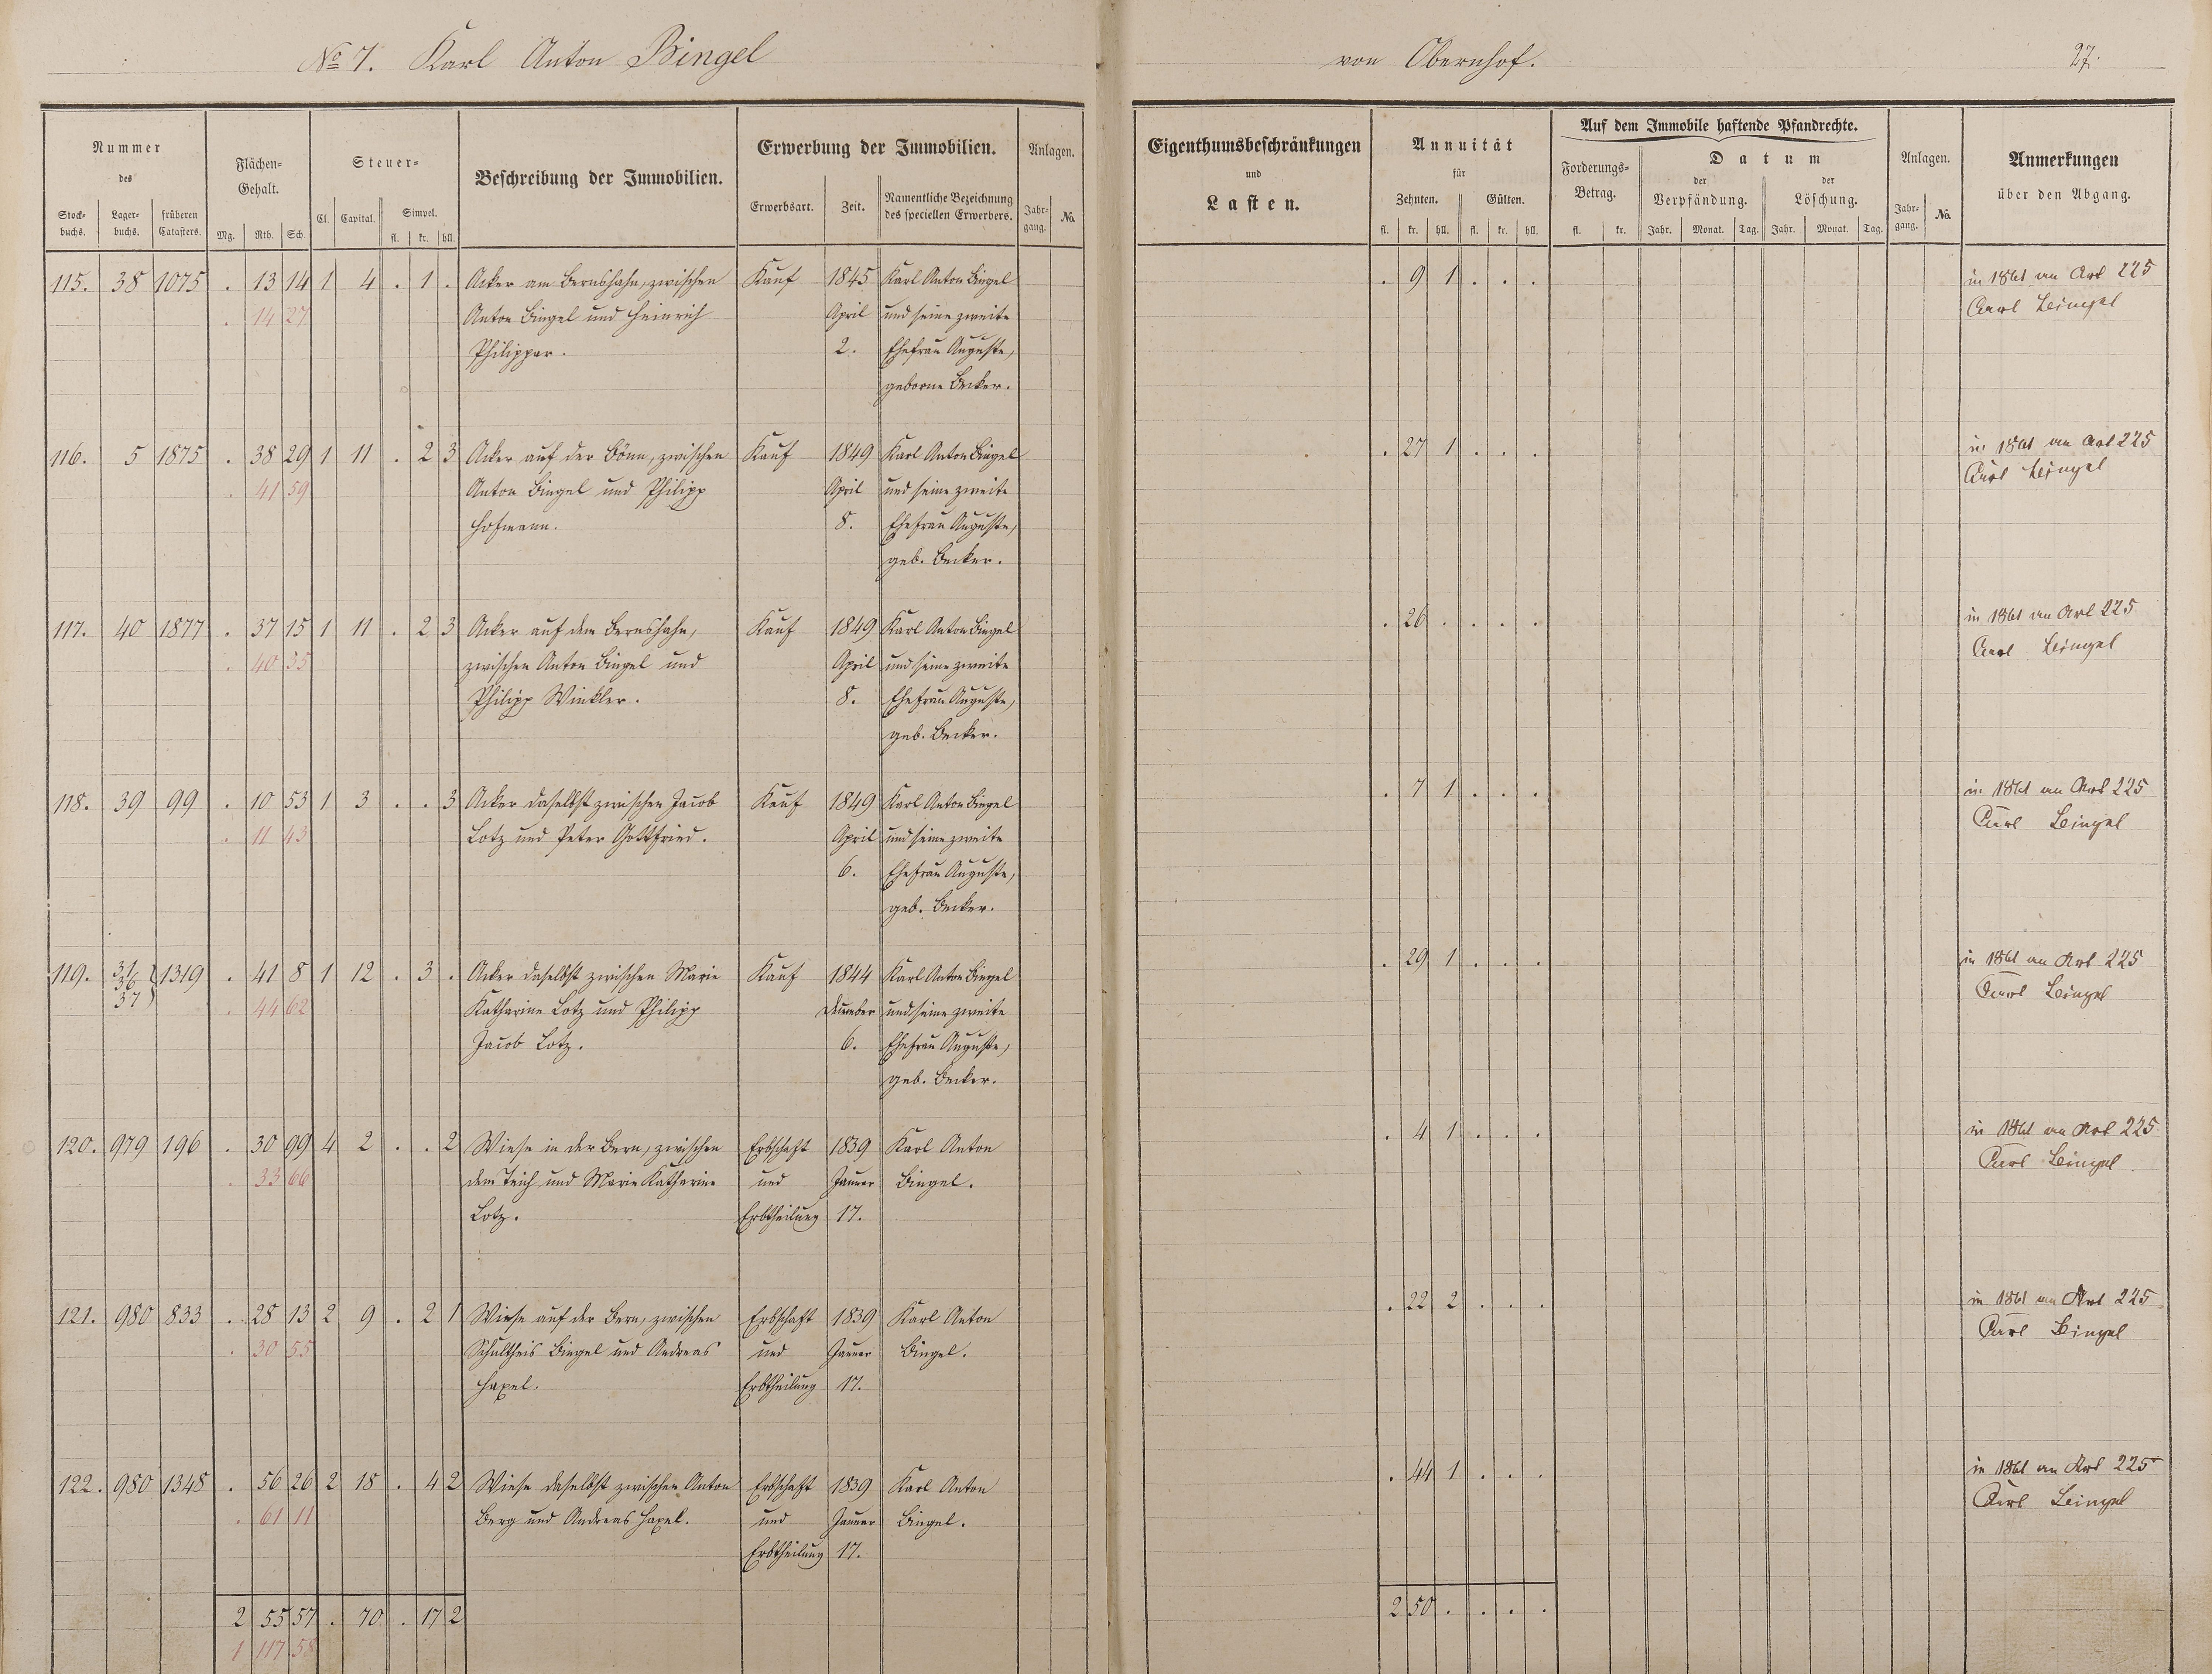 No 7. Karl Anton Bingel
von Obernhof.
27.
Nummer
des
Stock-
buchs.
Lager-
buchs.
früheren
Catasters.
Flächen-
Gehalt.
Mg. Rth. Sch.
Steuer-
Cl. Capital. Simpel.
fl. kr. hll.
Beschreibung der Immobilien.
Erwerbung der Immobilien.
Erwerbsart. Zeit. Namentliche Bezeichnung
des speciellen Erwerbers.
Anlagen.
Jahr-
gang. No.
Eigenthumsbeschränkungen
und
Lasten.
Annuität
für
Zehnten. Gülten.
fl. kr. hll. fl. kr. hll.
Auf dem Immobile haftende Pfandrechte.
Forderungs-
Betrag.
fl. kr.
Datum
der
Verpfändung.
der
Löschung.
Jahr. Monat. Tag. Jahr. Monat. Tag.
Anlagen.
Jahr-
gang. No.
Anmerkungen
über den Abgang.
115. 38 1075 . 13 14 1 4 . 1 . Acker am Bernshahn, zwischen Kauf 1845 Karl Anton Bingel . 9 1 . . . in 1861 an Art 225
. 14 27 Anton Bingel und Heinrich April und seine zweite Carl Bingel
Philippar. 2. Ehefrau Auguste,
geborne Becker.
116. 5 1875 . 38 29 1 11 . 2 3 Acker auf der Bönn, zwischen Kauf 1849 Karl Anton Bingel . 27 1 . . . in 1861 an Art 225
. 41 59 Anton Bingel und Philipp April und seine zweite Carl Bingel
Hofmann. 8. Ehefrau Auguste,
geb. Becker.
117. 40 1877 . 37 15 1 11 . 2 3 Acker auf dem Bernshahn, Kauf 1849 Karl Anton Bingel . 26 . . . . in 1861 an Art 225
. 40 35 zwischen Anton Bingel und April und seine zweite Carl Bingel
Philipp Winkler. 8. Ehefrau Auguste,
geb. Becker.
118. 39 99 . 10 53 1 3 . . 3 Acker daselbst zwischen Jacob Kauf 1849 Karl Anton Bingel . 7 1 . . . in 1861 an Art 225
. 11 43 Lotz und Peter Gottfried. April und seine zweite Carl Bingel
6. Ehefrau Auguste,
geb. Becker.
119. 31 36 37 1319 . 41 8 1 12 . 3 . Acker daselbst zwischen Marie Kauf 1844 Karl Anton Bingel . 29 1 . . . in 1861 an Art 225
. 44 62 Katharine Lotz und Philipp December und seine zweite Carl Bingel
Jacob Lotz. 6. Ehefrau Auguste,
geb. Becker.
120. 979 196 . 30 99 4 2 . . 2 Wiese in der Bern, zwischen Erbschaft 1839 Karl Anton . 4 1 . . . in 1861 an Art 225
. 33 66 dem Teich und Marie Katharine und Januar Bingel. Carl Bingel
Lotz. Erbtheilung 17.
121. 980 833 . 28 13 2 9 . 2 1 Wiese auf der Bern, zwischen Erbschaft 1839 Karl Anton . 22 2 . . . in 1861 an Art 225
. 30 55 Schultheis Bingel und Andreas und Januar Bingel. Carl Bingel
Haxel. Erbtheilung 17.
122. 980 1348 . 56 26 2 18 . 4 2 Wiese daselbst zwischen Anton Erbschaft 1839 Karl Anton . 44 1 . . . in 1861 an Art 225
. 61 11 Berg und Andreas Haxel. und Januar Bingel. Carl Bingel
Erbtheilung 17.
2 55 57 . 70 . 17 2 2 50 . . . .
1 117 58